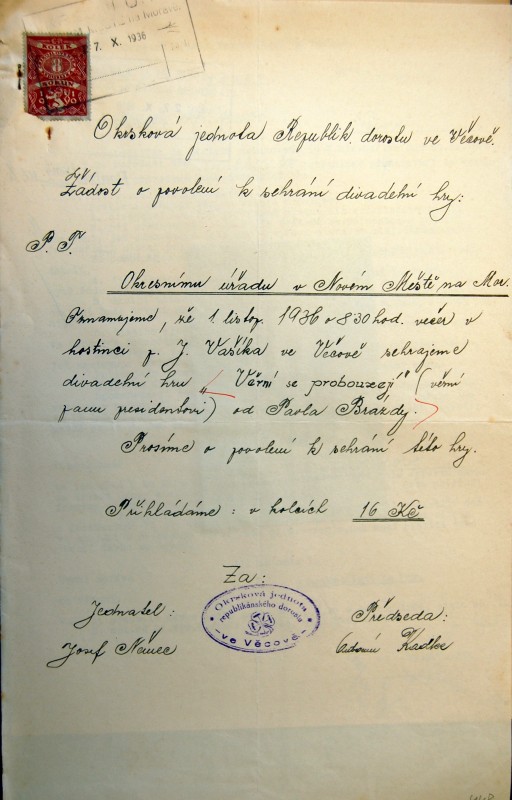 7. X. 1936
KOLEK
8
Okrsková jednota Republik. dorostu ve Věcově.
Žádost o povolení k sehrání divadelní hry:
P. T.
Okresnímu úřadu v Novém Městě na Mor.
Oznamujeme, že 1. listop. 1936 o 8 30 hod. večer v
hostinci p. J. Vašíka ve Věcově sehrajeme
divadelní hru „Věrní se probouzejí" (věrni
panu presidentovi) od Pavla Brázdy.
Prosíme o povolení k sehrání této hry.
Přikládáme: v kolcích 16 Kč
Za:
Okrsková jednota
republikánského dorostu
- ve Věcově -
Jednatel:
Předseda:
Josef Němec
Kadlec